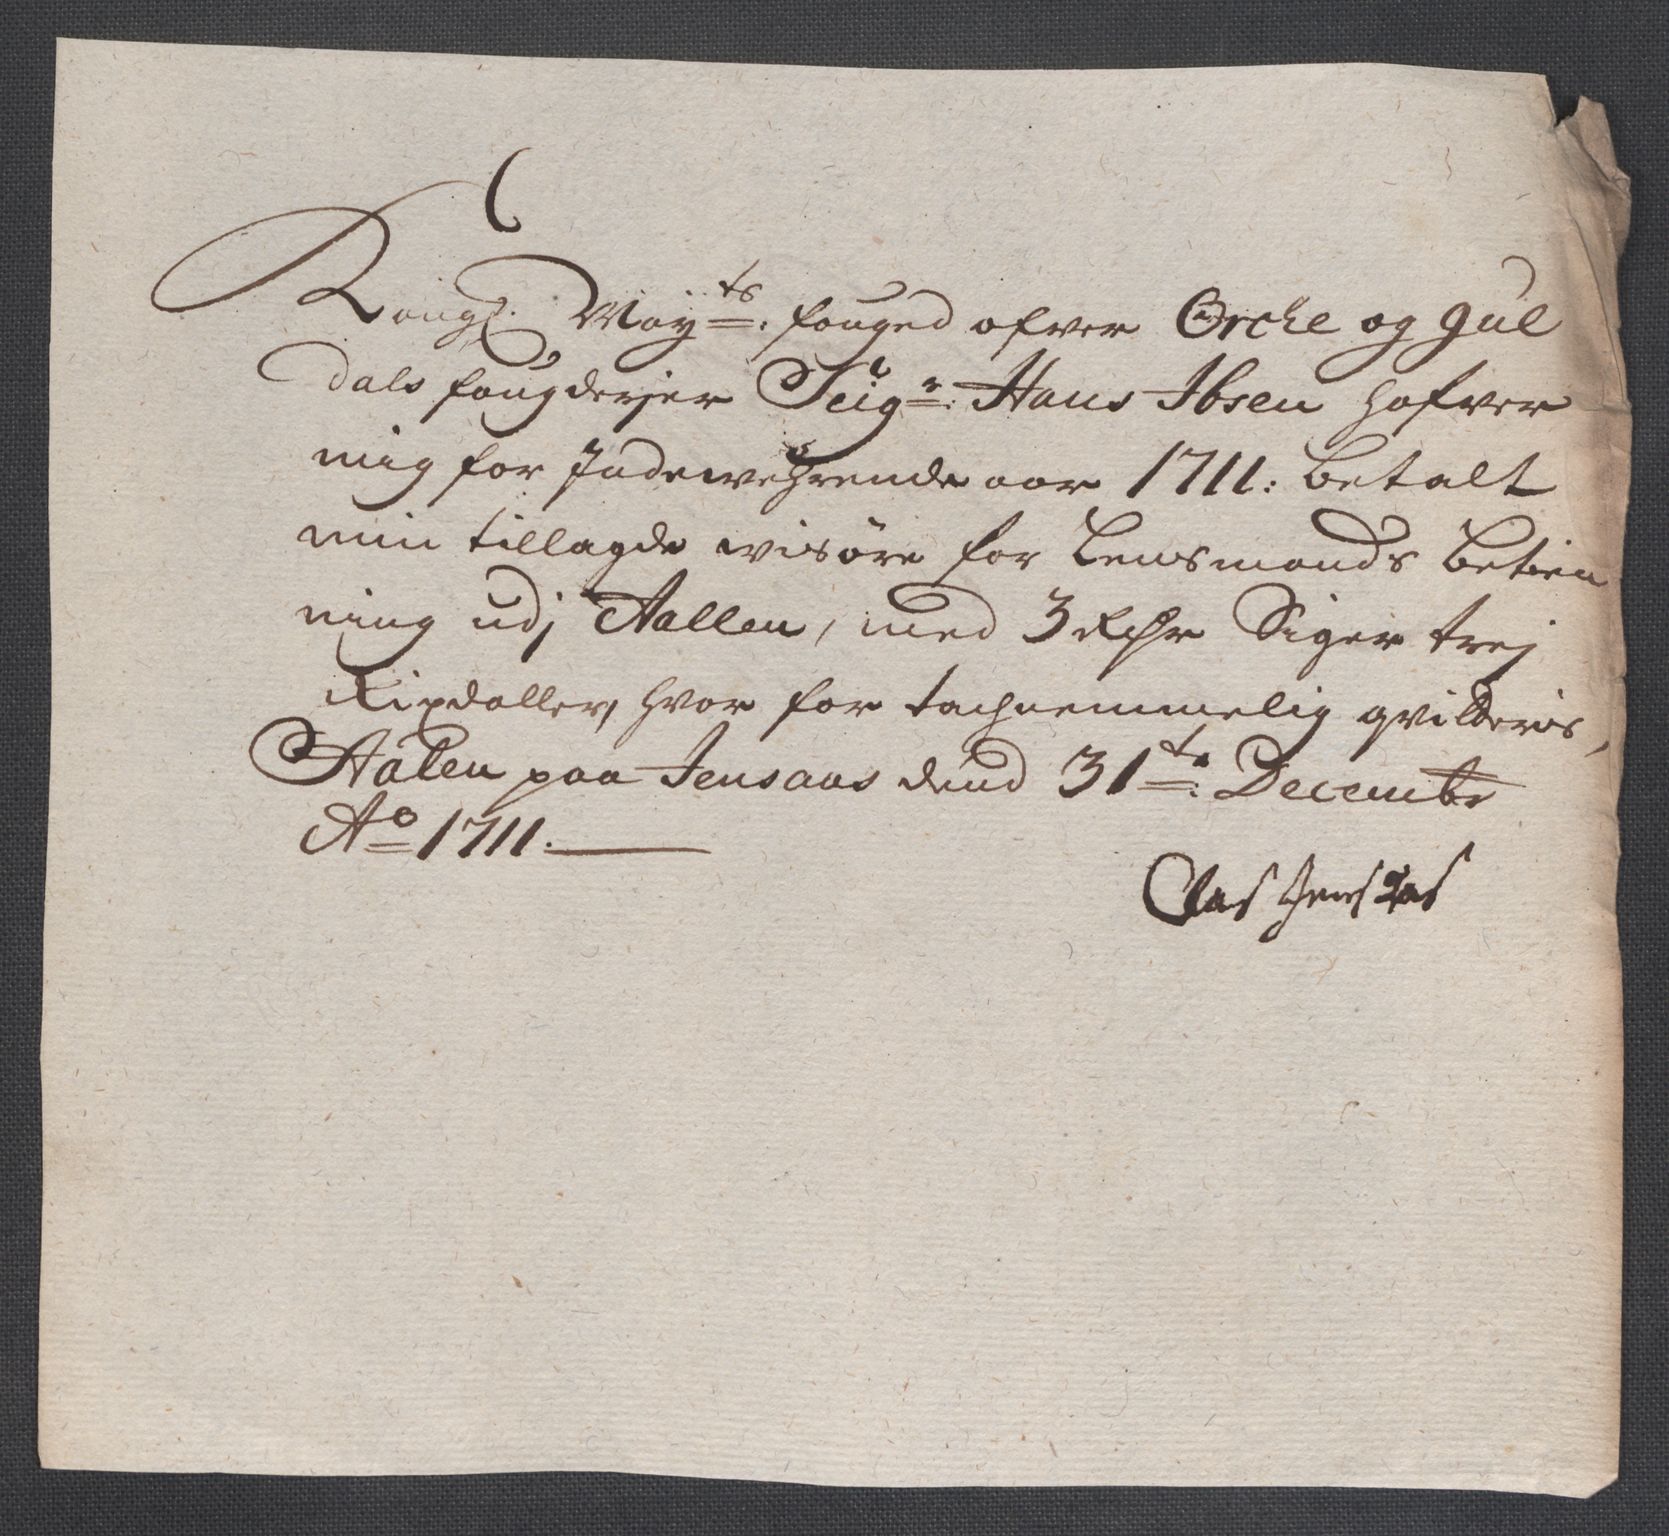 Kongl. Mayts. fouged ofver Orche og Gul
dals fougderjer Seigr. Hans Ibsen hafver
mig for Indewehrende aar 1711: betalt
min tillagde wisøre for Lensmands betien
ning udj Aallen, med 3 Rdr Siger trej
Rixdaller, hvor for tachnemmelig qvitteris,
Aalen paa Jensaas dend 31te. Decembr
Ao 1711.
Clas Jens aas